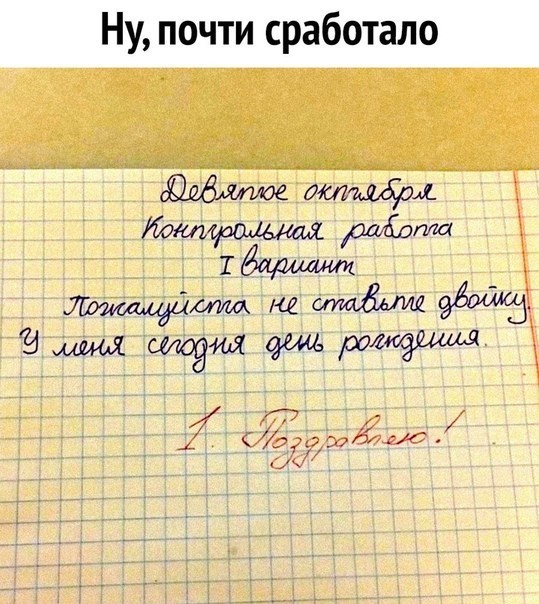 Ну, почти сработало
Девятое октября
Контрольная работа
I Вариант
Пожалуйста не ставьте двойку.
У меня сегодня день рождения.
1. Поздравляю!